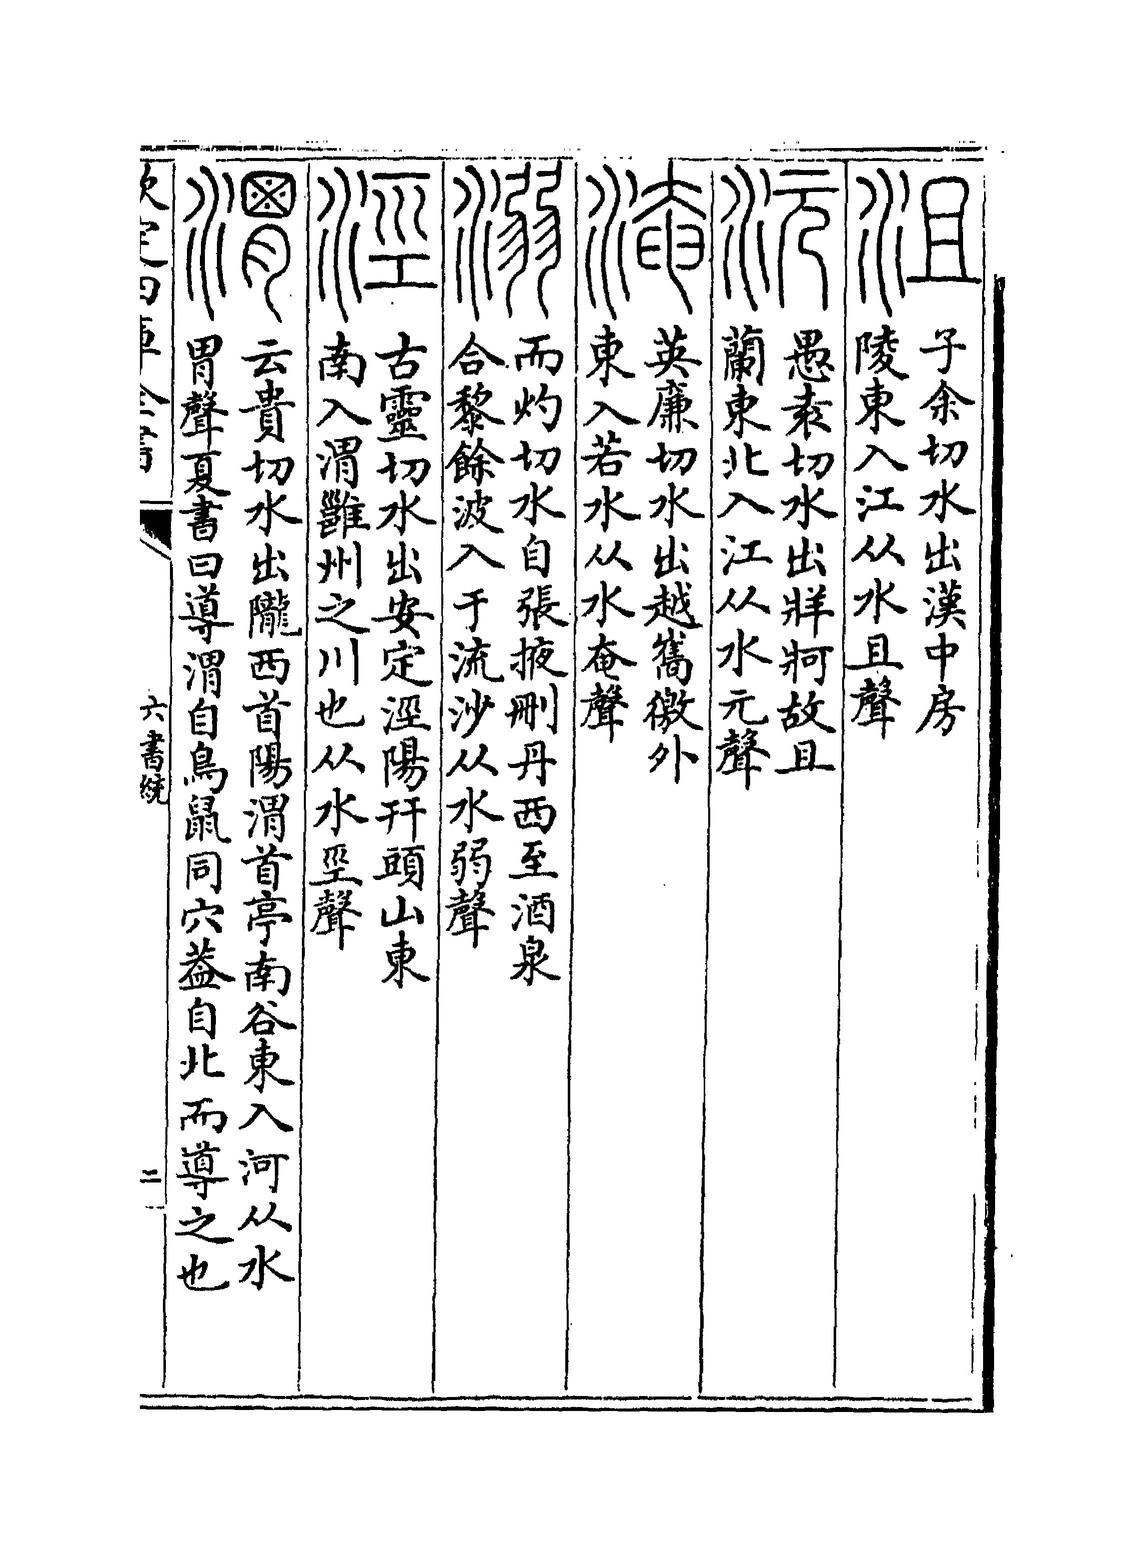 沮
子余切水出漢中房
陵東入江从水且聲
沅
愚袁切水出牂牁故且
蘭東北入江从水元聲
淹
英廉切水出越巂徼外
東入若水从水奄聲
溺
而灼切水自張掖刪丹西至酒泉
合黎餘波入于流沙从水弱聲
涇
古靈切水出安定涇陽幵頭山東
南入渭雝州之川也从水巠聲
渭
云貴切水出隴西首陽渭首亭南谷東入河从水
胃聲夏書曰導渭自鳥鼠同穴葢自北而導之也
欽定四庫全書
六書統
二